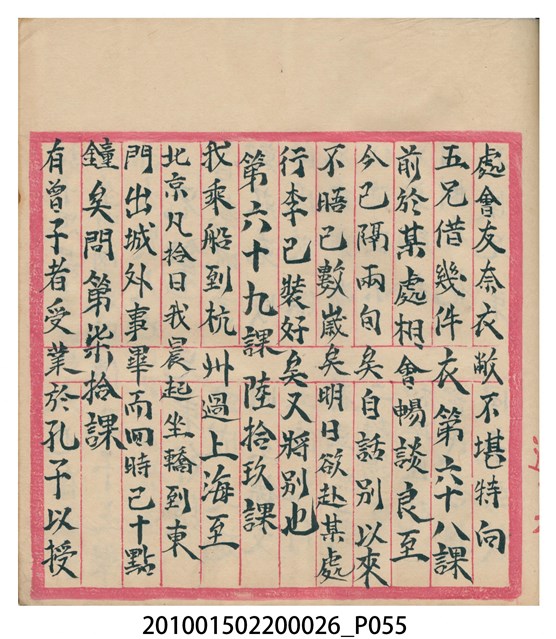 處會友奈衣敝不堪特向
五兄借幾件衣第六十八課
前於某處相會暢談良至
今已隔兩旬矣自話別以來
不晤已數歲矣明日欲赴某處
行李已裝好矣又將別也
第六十九課陸拾玖課
我乘船到杭州過上海至
北京凡拾日我晨起坐轎到東
門出城外事畢而回時已十點
鐘矣問第柒拾課
有曾子者受業於孔子以授
201001502200026_P055